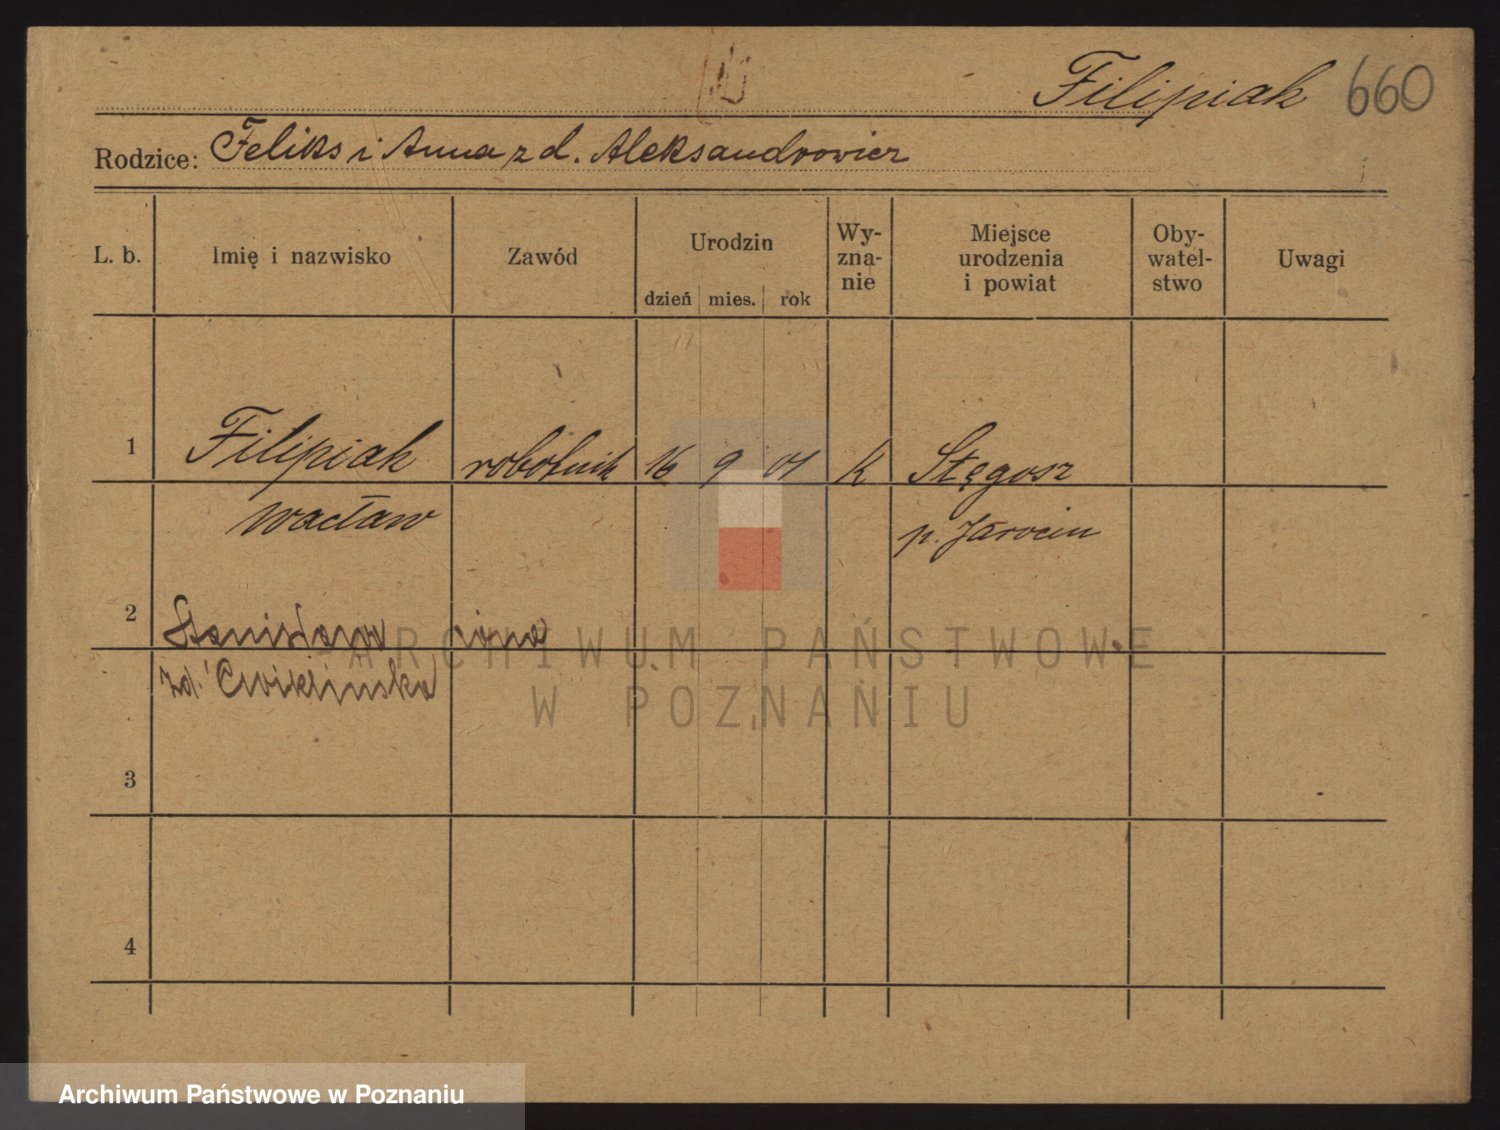 Filipiak 660
Rodzice: Feliks i Anna z d. Aleksandrowicz
L. b. Imię i nazwisko Zawód Urodzin dzień mies. rok Wy-zna-nie Miejsce urodzenia i powiat Oby-watel-stwo Uwagi
1 Filipiak robotnik 16 9 01 K Stęgosz
Wacław p. Jarocin
2 Stanisława żona
zd. Ćwiklińska
3
4
ARCHIWUM PAŃSTWOWE
W POZNANIU
Archiwum Państwowe w Poznaniu